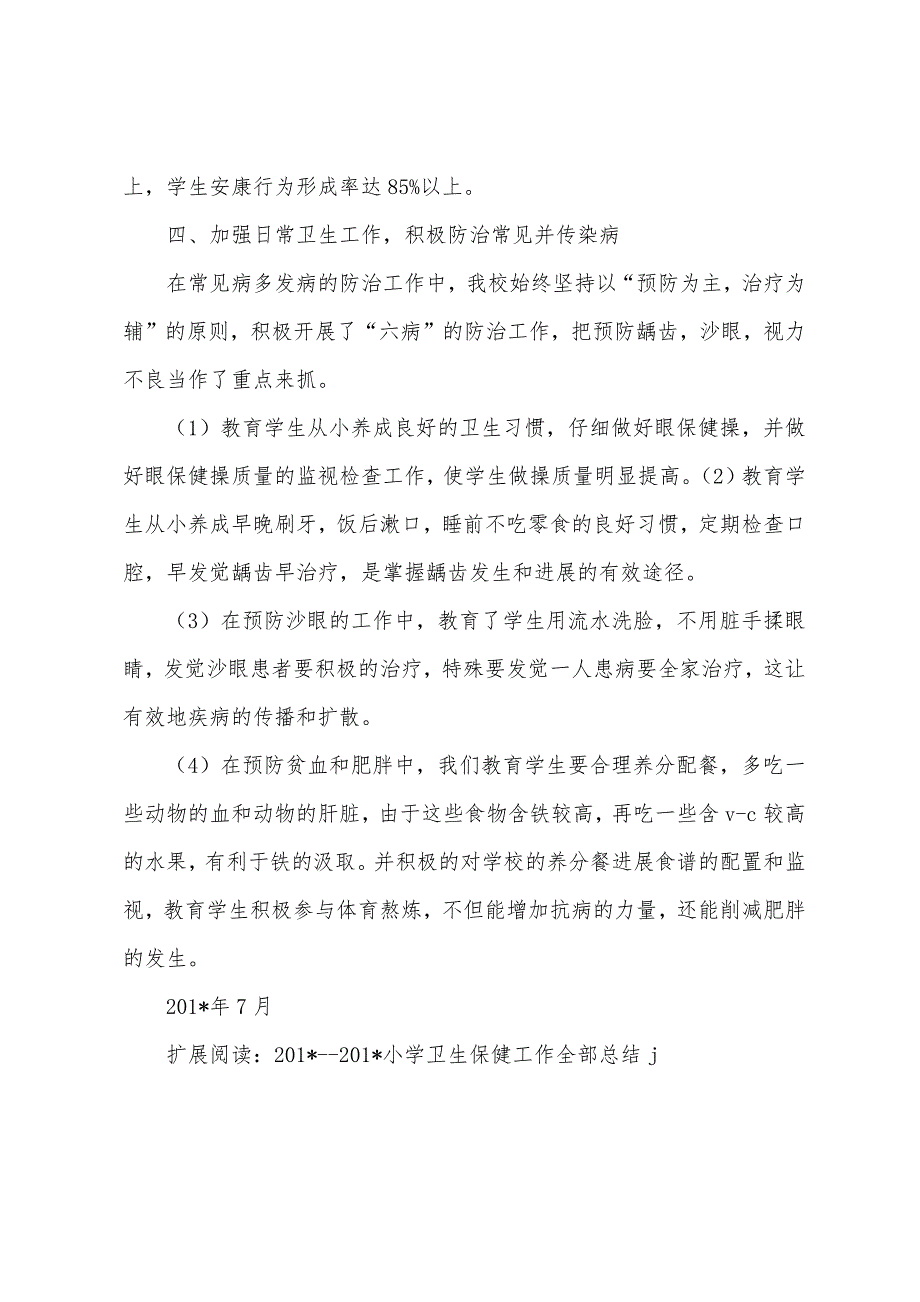 上，学生安康行为形成率达 85%以上。
四、加强日常卫生工作，积极防治常见并传染病
在常见病多发病的防治工作中，我校始终坚持以“预防为主，治疗为
辅”的原则，积极开展了“六病”的防治工作，把预防龋齿，沙眼，视力
不良当作了重点来抓。
（1）教育学生从小养成良好的卫生习惯，仔细做好眼保健操，并做
好眼保健操质量的监视检查工作，使学生做操质量明显提高。（2）教育学
生从小养成早晚刷牙，饭后漱口，睡前不吃零食的良好习惯，定期检查口
腔，早发觉龋齿早治疗，是掌握龋齿发生和进展的有效途径。
（3）在预防沙眼的工作中，教育了学生用流水洗脸，不用脏手揉眼
睛，发觉沙眼患者要积极的治疗，特殊要发觉一人患病要全家治疗，这让
有效地疾病的传播和扩散。
（4）在预防贫血和肥胖中，我们教育学生要合理养分配餐，多吃一
些动物的血和动物的肝脏，由于这些食物含铁较高，再吃一些含 v-c 较高
的水果，有利于铁的汲取。并积极的对学校的养分餐进展食谱的配置和监
视，教育学生积极参与体育熬炼，不但能增加抗病的力量，还能削减肥胖
的发生。
201*年 7 月
扩展阅读：201*--201*小学卫生保健工作全部总结 j